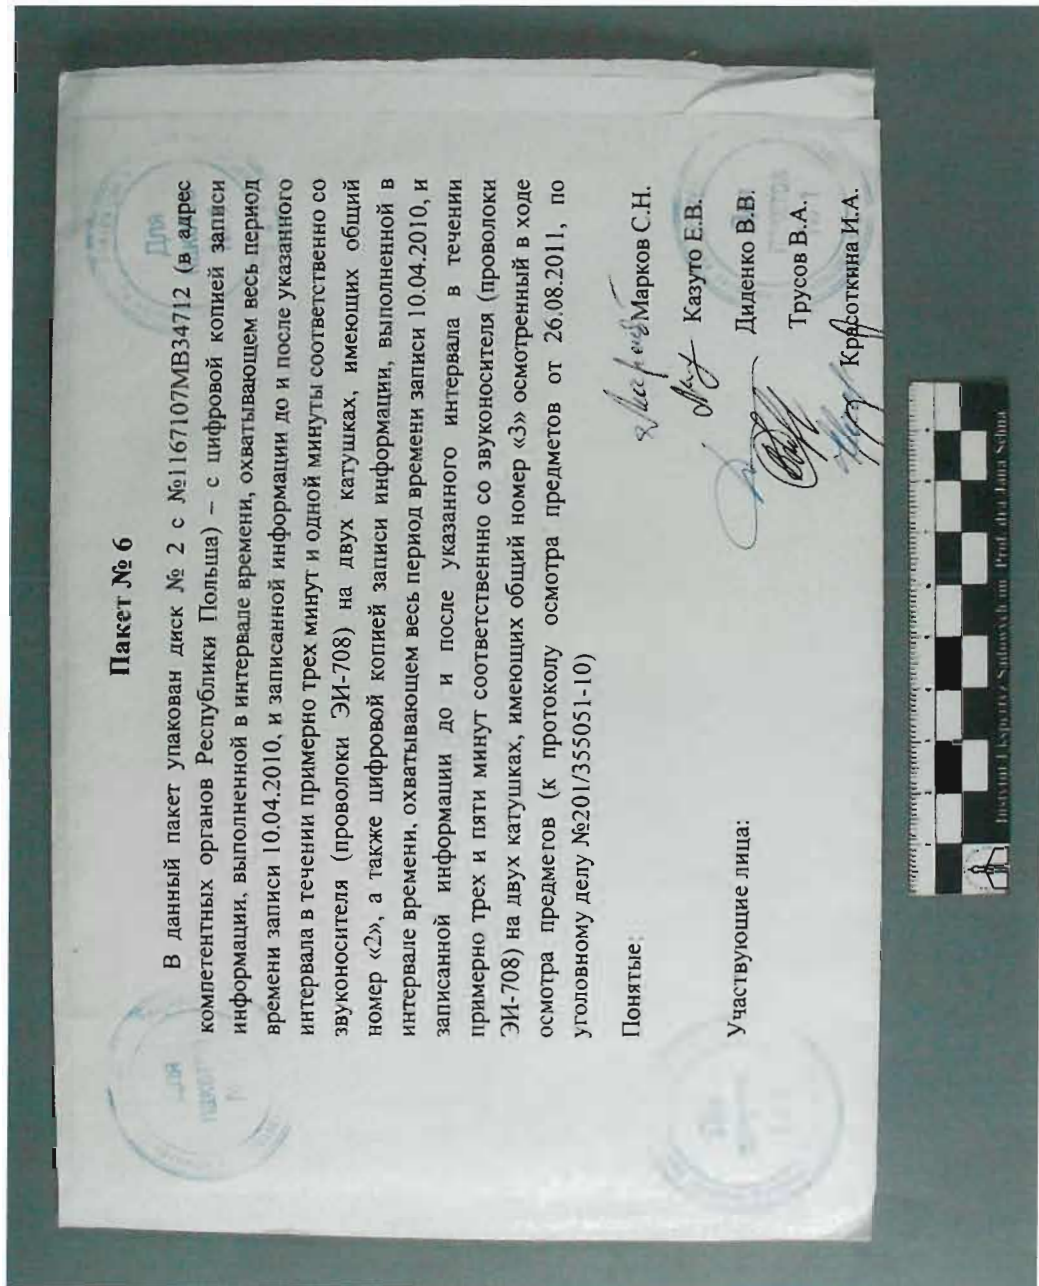 Пакет № 6
В данный пакет упакован диск № 2 с №1167107МВ34712 (в адрес
компетентных органов Республики Польша) – с цифровой копией записи
информации, выполненной в интервале времени, охватывающем весь период
времени записи 10.04.2010, и записанной информации до и после указанного
интервала в течении примерно трех минут и одной минуты соответственно со
звуконосителя (проволоки ЭИ-708) на двух катушках, имеющих общий
номер «2», а также цифровой копией записи информации, выполненной в
интервале времени, охватывающем весь период времени записи 10.04.2010, и
записанной информации до и после указанного интервала в течении
примерно трех и пяти минут соответственнно со звуконосителя (проволоки
ЭИ-708) на двух катушках, имеющих общий номер «3» осмотренный в ходе
осмотра предметов (к протоколу осмотра предметов от 26.08.2011, по
уголовному делу №201/355051-10)
Понятые:
Марков С.Н.
Казуто Е.В.
Участвующие лица:
Диденко В.В.
Трусов В.А.
Красоткина И.А.
Для
Instytut Ekspertyz Sądowych im. Prof. dra Jana Sehna